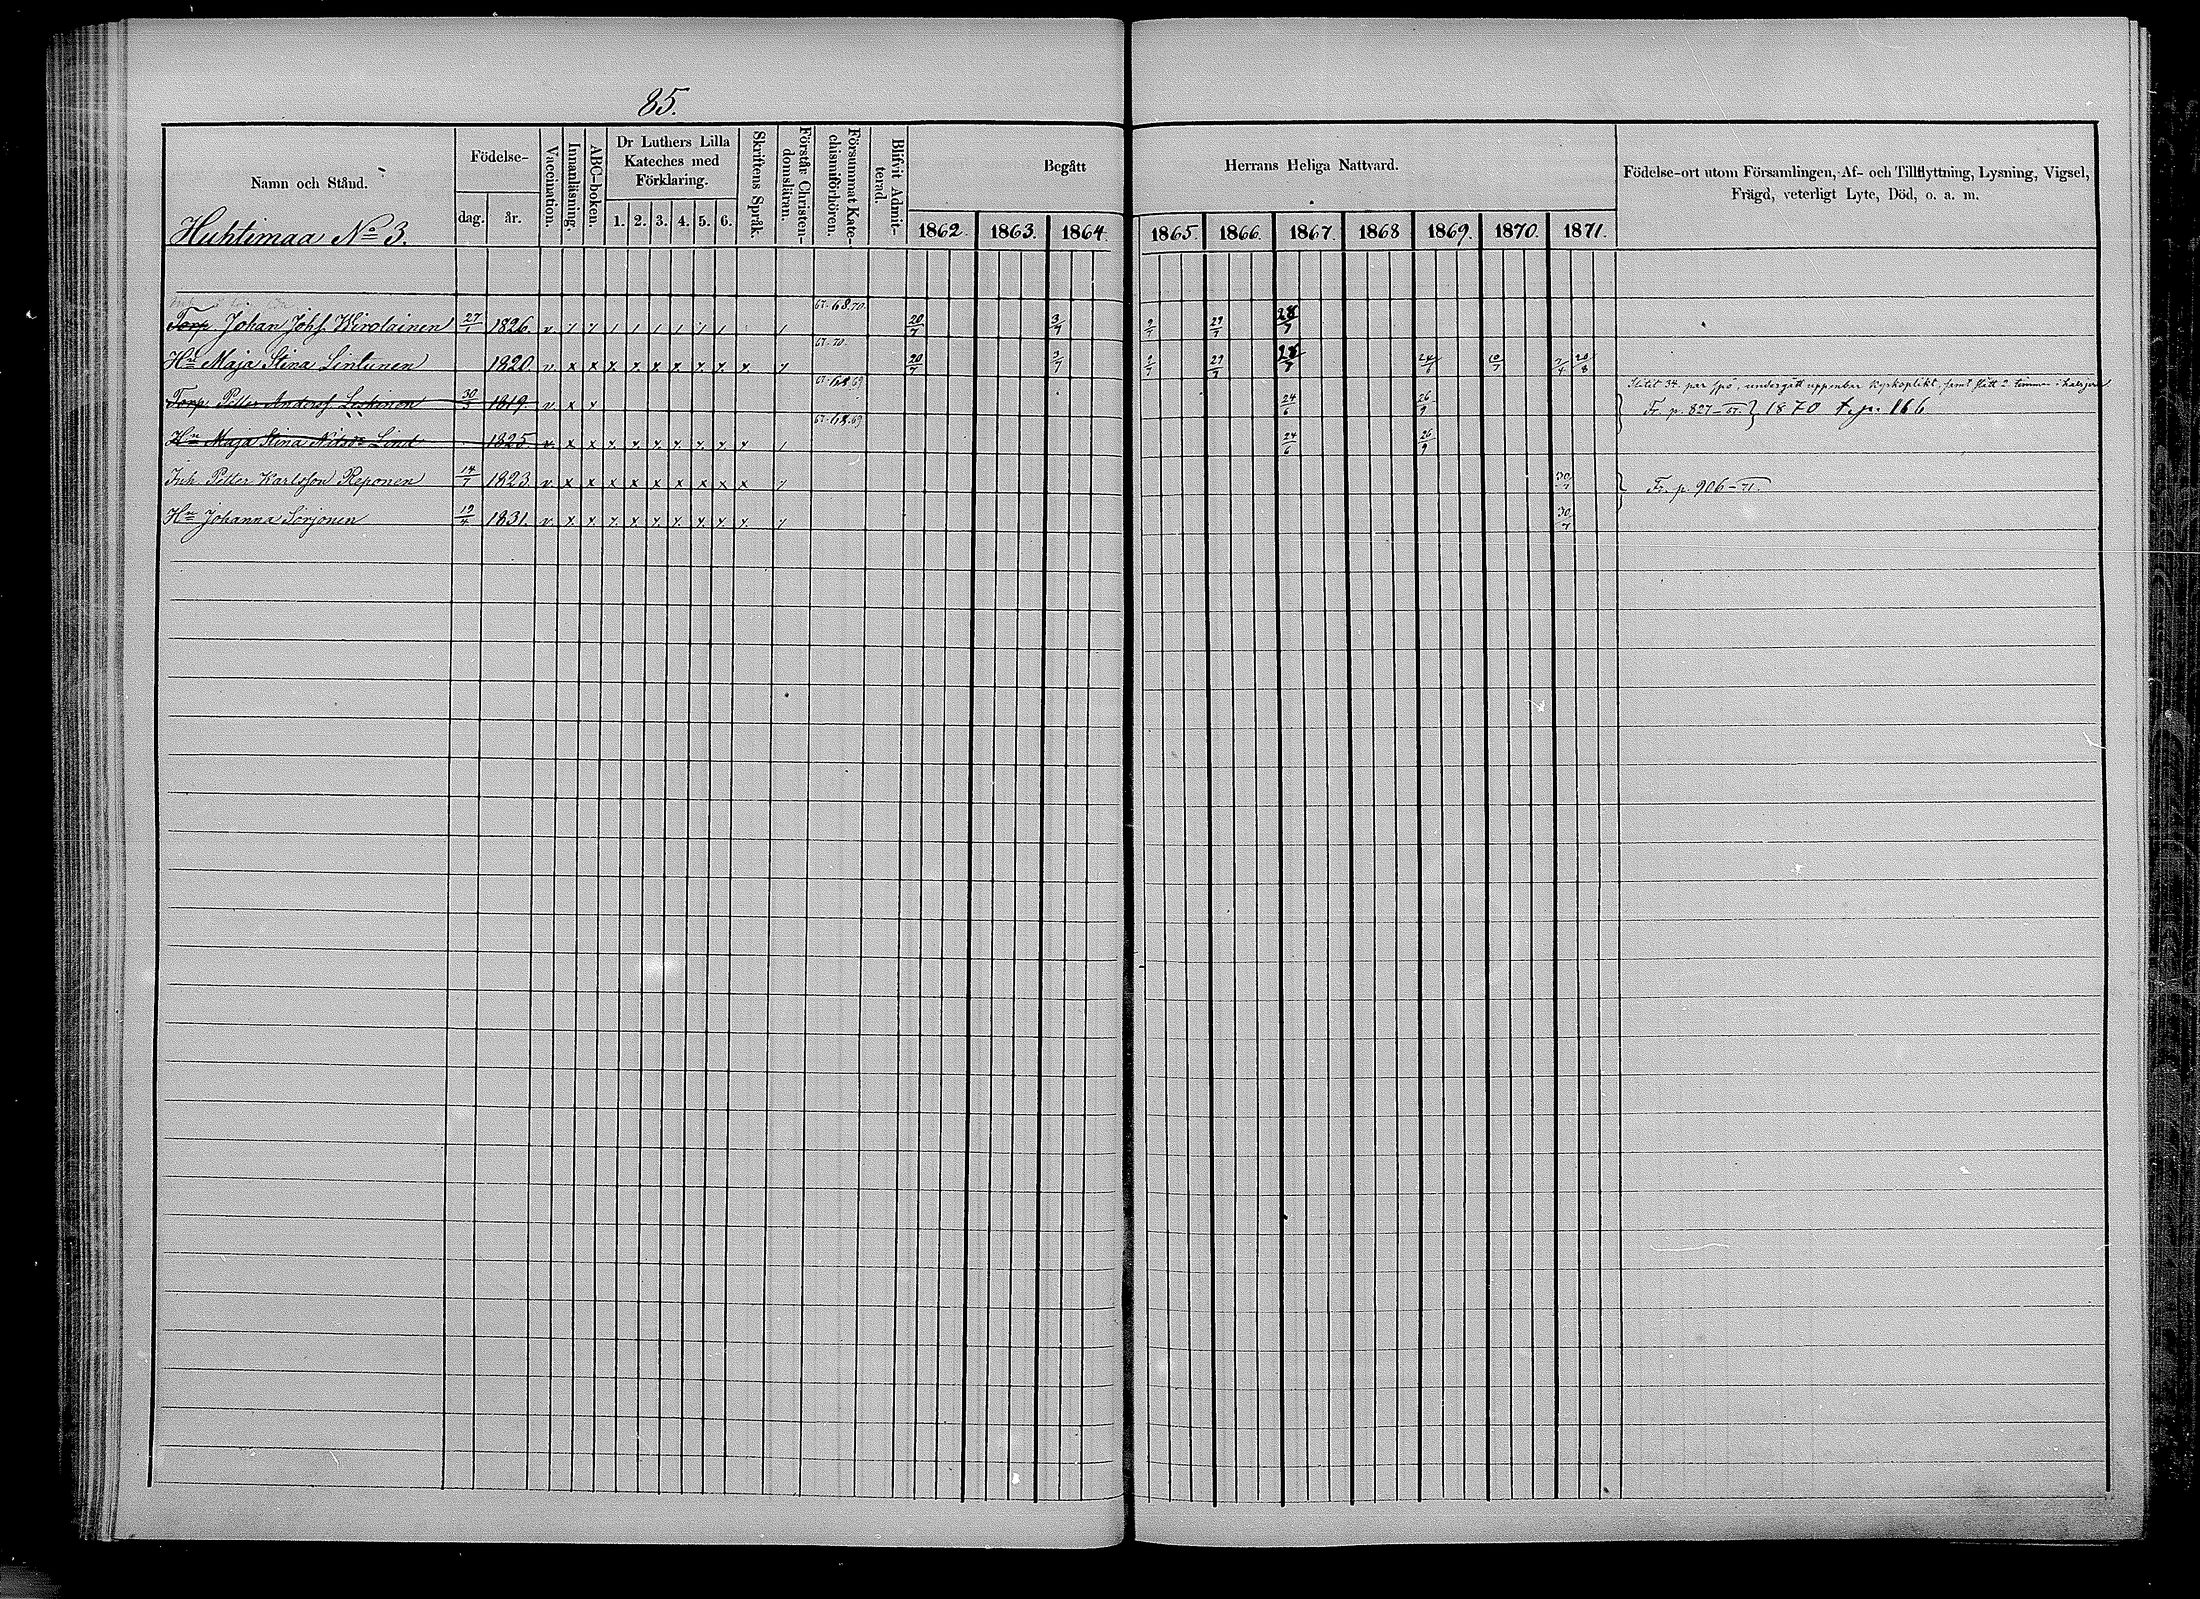 85.
Namn och Stånd.
Födelse-
dag.
år.
Vaccination.
Innanläsning.
ABC-boken.
Dr Luthers Lilla
Kateches med
Förklaring.
1. 2. 3. 4. 5. 6.
Skriftens Språk.
Förstår Christen-
domsläran.
Försummat Kate-
chismiförhören.
Blifvit Admit-
terad.
Begått Herrans Heliga Nattvard.
1862. 1863. 1864. 1865. 1866. 1867. 1868 1869. 1870. 1871.
Födelse-ort utom Församlingen, Af- och Tillflyttning, Lysning, Vigsel,
Frägd, veterligt Lyte, Död, o. a. m.
Huhtimaa No 3.
67. 68. 70.
Torp. Johan Johs. Wirolainen 27/1 1826. v 20/7 3/7 9/7 29/7 28/7
67. 70.
Hu Maja Stina Sintunen 1820. v x x x x x x x x x 20/7 3/7 9/7 29/7 28/7 24/6 10/7 2/4 20/8
67. 68. 69
Torp. Petter Anderss. Leskinen 30/3 1819. v x x 24/6 26/9
Slitit 34 par spö, undergått uppenbar kyrkoplikt, samt 2 timmar i
Fr. p. 827-67. 1870 t. p. 166
67. 68. 69
Hu Maja Stina Lind 1825. v. x x x x x x x x x 24/6 26/9
Inh. Petter Karlsson Reponen 14/7 1823. v x x x x x x x x x 30/7
Fr. p. 906-71.
Hu Johanna Sorjonen 19/4 1831. v. x x x x x x x x x 30/7